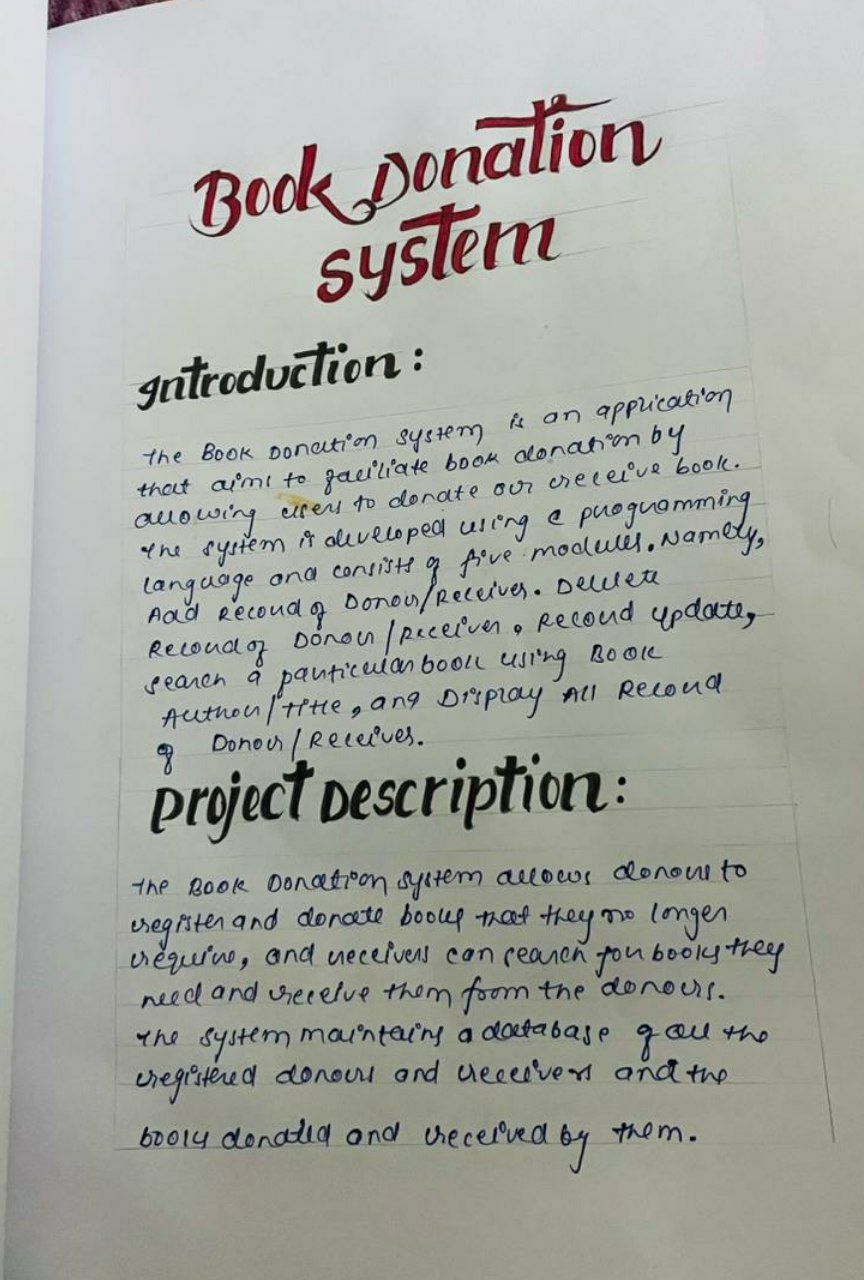 Book Donation
system
Introduction:
The Book Donation system is an application
that aims to faciliate book donation by
allowing users to donate our receive book.
The system is developed using a programming
language and consists of five modules. Namely,
Add Record of Donor/Receiver. Delete
Record of Donor/Receiver, Record update,
search a particular book using Book
Author/Title, and Display All Record
of Donor/Receiver.
Project Description:
The Book Donation system allows donors to
register and donate books that they no longer
require, and receivers can search for books they
need and receive them from the donors.
The system maintains a database of all the
registered donors and receivers and the
books donated and received by them.